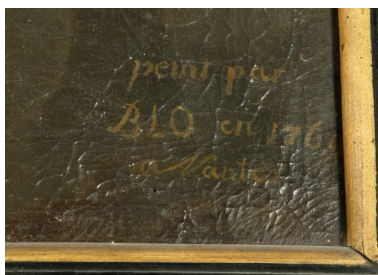 peint par
BLO en 176
a Nantes